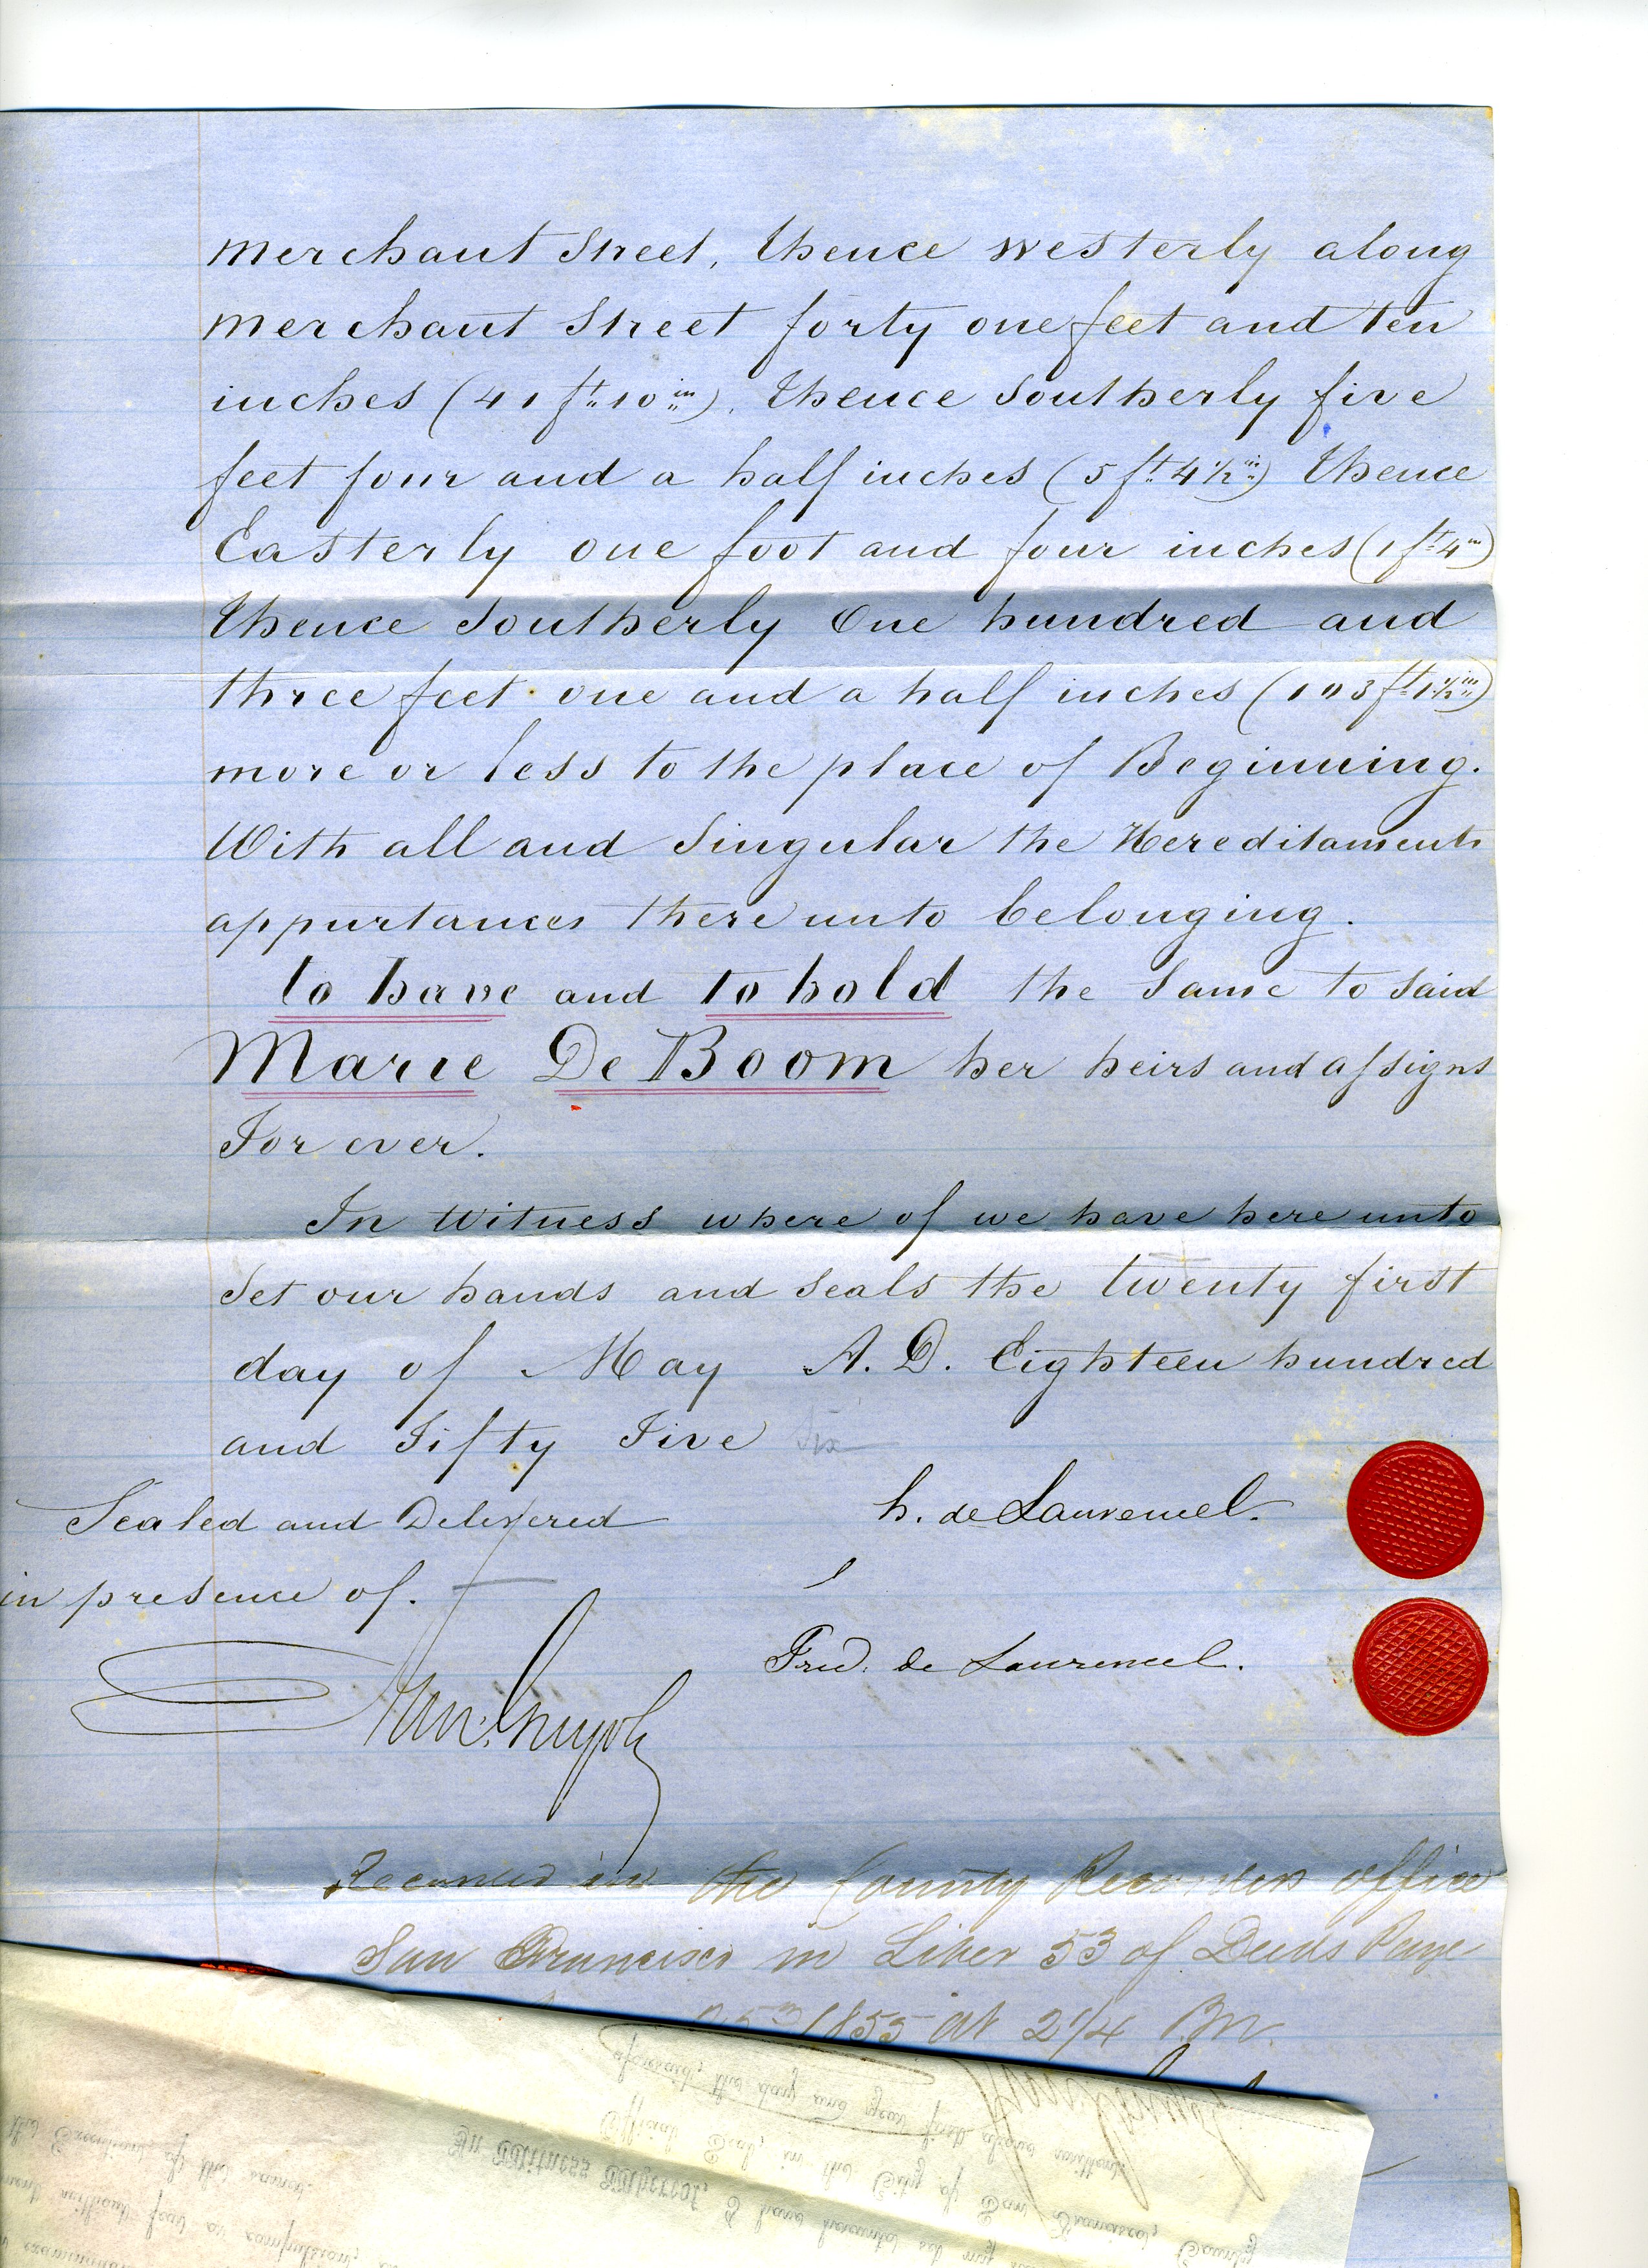 Merchant Street, thence westerly along
Merchant Street forty one feet and ten
inches (41 ft. 10 in.), thence Southerly five
feet four and a half inches (5 ft. 4 1/2 in.) thence
Easterly one foot and four inches (1 ft. 4 in)
thence Southerly One hundred and
three feet one and a half inches (103 ft. 1 1/2 in.)
more or less to the place of Beginning.
With all and Singular the Hereditaments
appurtances there unto belonging.
to have and to hold the Same to Said
Marie De Boom her heirs and assigns
Forever.
In Witness where of we have here unto
Set our hands and Seals the twenty first
day of May A.D. Eighteen hundred
and Fifty Five Six
Sealed and Delivered
h. de Laurencel.
in presence of.
Fred. de Laurencel.
Recorded in the County Recorders office
San Francisco in Liber 53 of Deeds Page
1855 at 2 1/4 P.M.
aforesaid, the day and year first above written.
Official Seal, in the City of San Francisco,
In Witness Whereof, I have hereunto set my